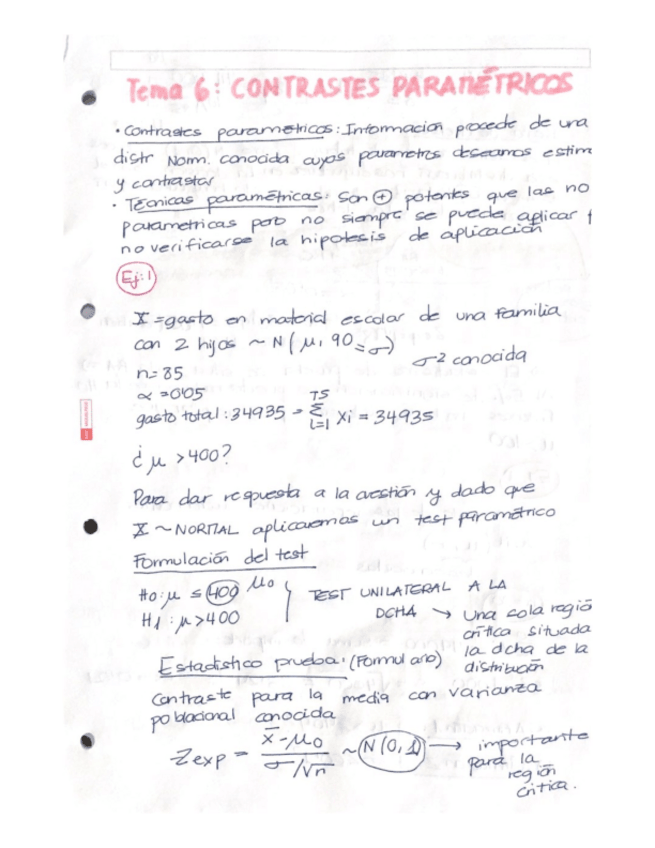 Tema 6: CONTRASTES PARAMÉTRICOS
· Contrastes paramétricos: Información procede de una
distr Norm. conocida cuyos parametros deseamos estim
y contrastar
· Técnicas paramétricas: Son (+) potentes que las no
parametricas pero no siempre se puede aplicar
no verificarse la hipotesis de aplicación
Ej:1
X = gasto en material escolar de una familia
con 2 hijos ~ N(μ, 90 = σ)
σ² conocida
n = 85
α = 0'05
gasto total: 34935 = Σ Xi = 34935
i=1
¿ μ > 400?
Para dar respuesta a la cuestión y dado que
X ~ NORMAL aplicaremos un test paramétrico
Formulación del test
Ho: μ ≤ 400 μo
H1: μ > 400
TEST UNILATERAL A LA
DCHA → Una cola regió
crítica situada
la dcha de la
distribución
Estadístico prueba: (Formulario)
Contraste para la media con varianza
poblacional conocida
Zexp = (x̄ - μo) / (σ/√n) ~ N(0,1) → importante
para la
región
critica.